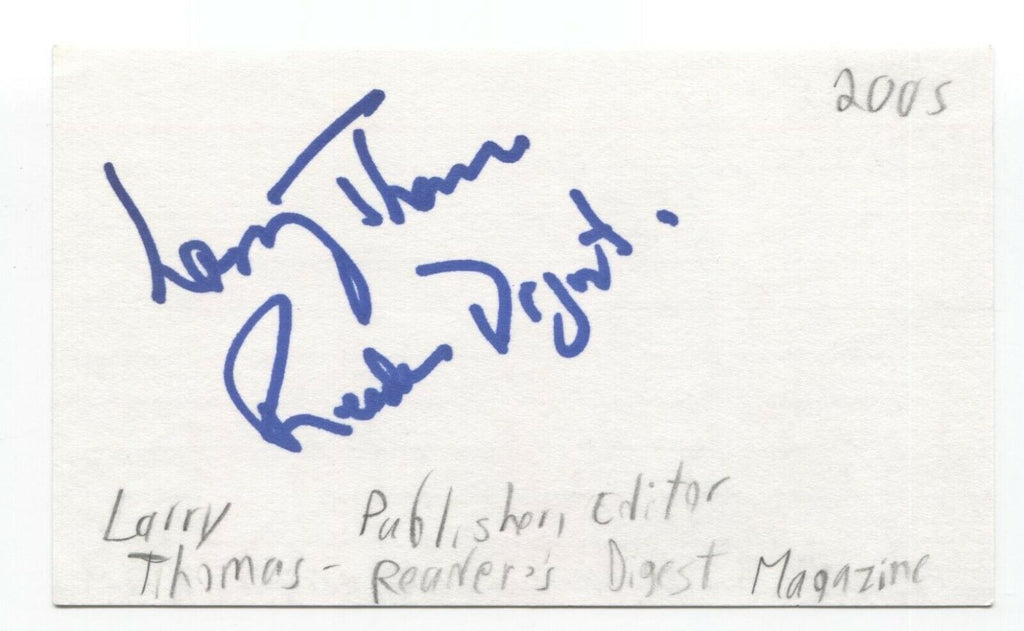 2005
Larry Thomas
Reader's Digest.
Larry Publisher, Editor
Thomas - Reader's Digest Magazine